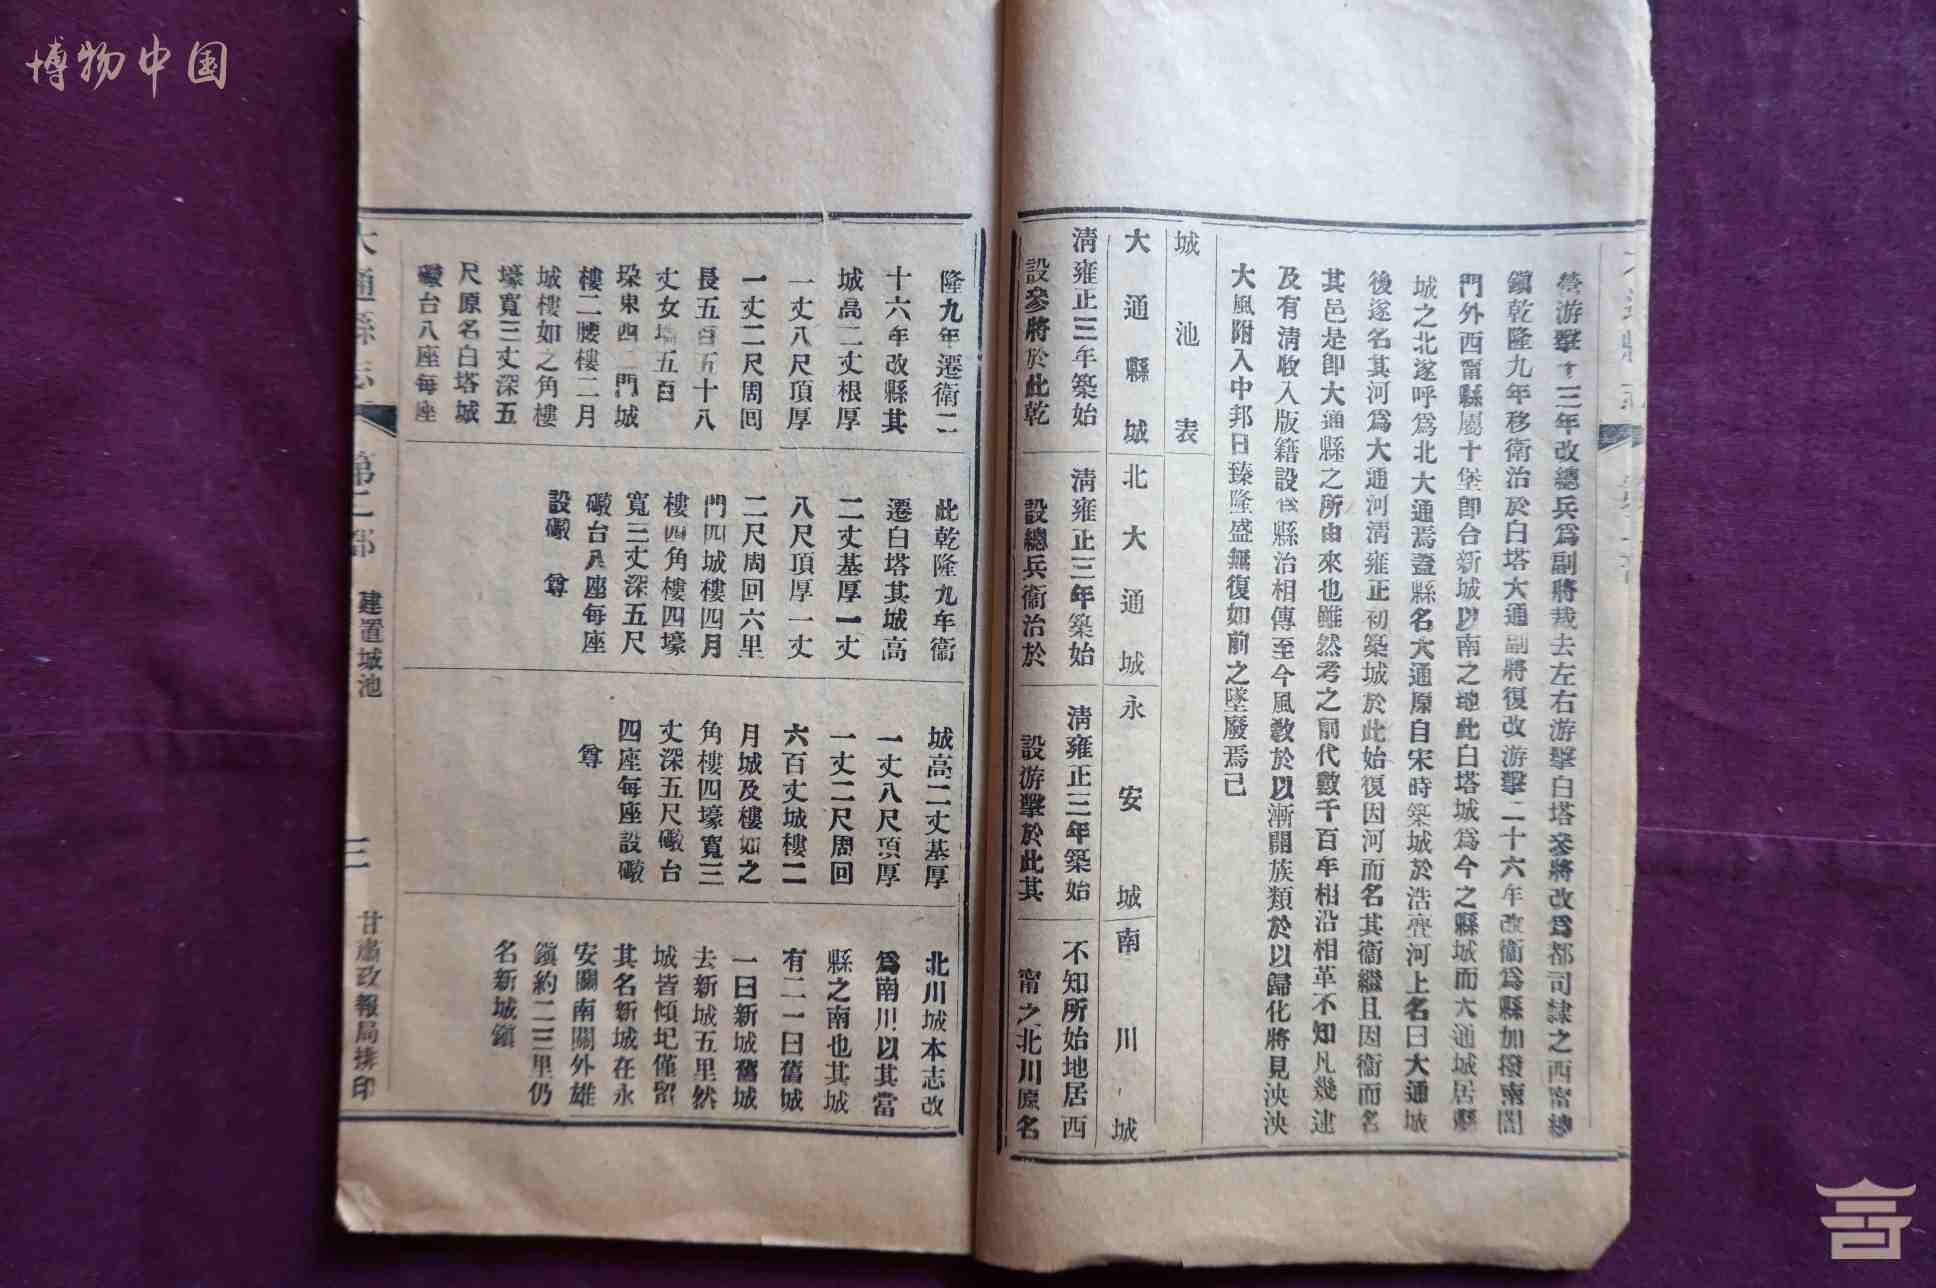 博物中国
營游擊十三年改總兵爲副將裁去左右游擊白塔叅將改爲都司隸之西甯總
鎭乾隆九年移衛治於白塔大通副將復改游擊二十六年改衛爲縣加撥南關
門外西甯縣屬十堡卽台新城以南之地此白塔城爲今之縣城而大通城居縣
城之北遂呼爲北大通焉證縣名大通原自宋時築城於浩亹河上名曰大通城
後遂名其河爲大通河淸雍正初築城於此始復因河而名其衞繼且因衞而名
其邑是卽大通縣之所由來也雖然考之前代數千百年相沿相革不知凡幾逮
及有淸收入版籍設爲縣治相傳至今風敎於以漸開族類於以歸化將見泱泱
大風附入中邦日臻隆盛無復如前之墜廢焉已
城池表
大通縣城
北大通城
永安城
南川城
淸雍正三年築始
設叅將於此乾
淸雍正三年築始
設總兵衞治於
淸雍正三年築始
設游擊於此其
不知所始地居西
甯之北川原名
隆九年遷衛二
十六年改縣其
城高二丈根厚
一丈八尺頂厚
一丈二尺周囘
長五百五十八
丈女墻五百
垜東西二門城
樓二腰樓二月
城樓如之角樓
壕寬三丈深五
尺原名白塔城
礮台八座每座
此乾隆九年衞
遷白塔其城高
二丈基厚一丈
八尺頂厚一丈
二尺周回六里
門四城樓四月
樓四角樓四壕
寬三丈深五尺
礮台八座每座
設礮　尊
城高二丈基厚
一丈八尺頂厚
一丈二尺周回
六百丈城樓二
月城及樓如之
角樓四壕寬三
丈深五尺礮台
四座每座設礮
尊
北川城本志改
爲南川以其當
縣之南也其城
有二一曰舊城
一曰新城舊城
去新城五里然
城皆傾圮僅留
其名新城在永
安關南關外雄
鎭約二三里仍
名新城鎭
大通縣志
第二部
建置城池
三
甘肅政報局排印